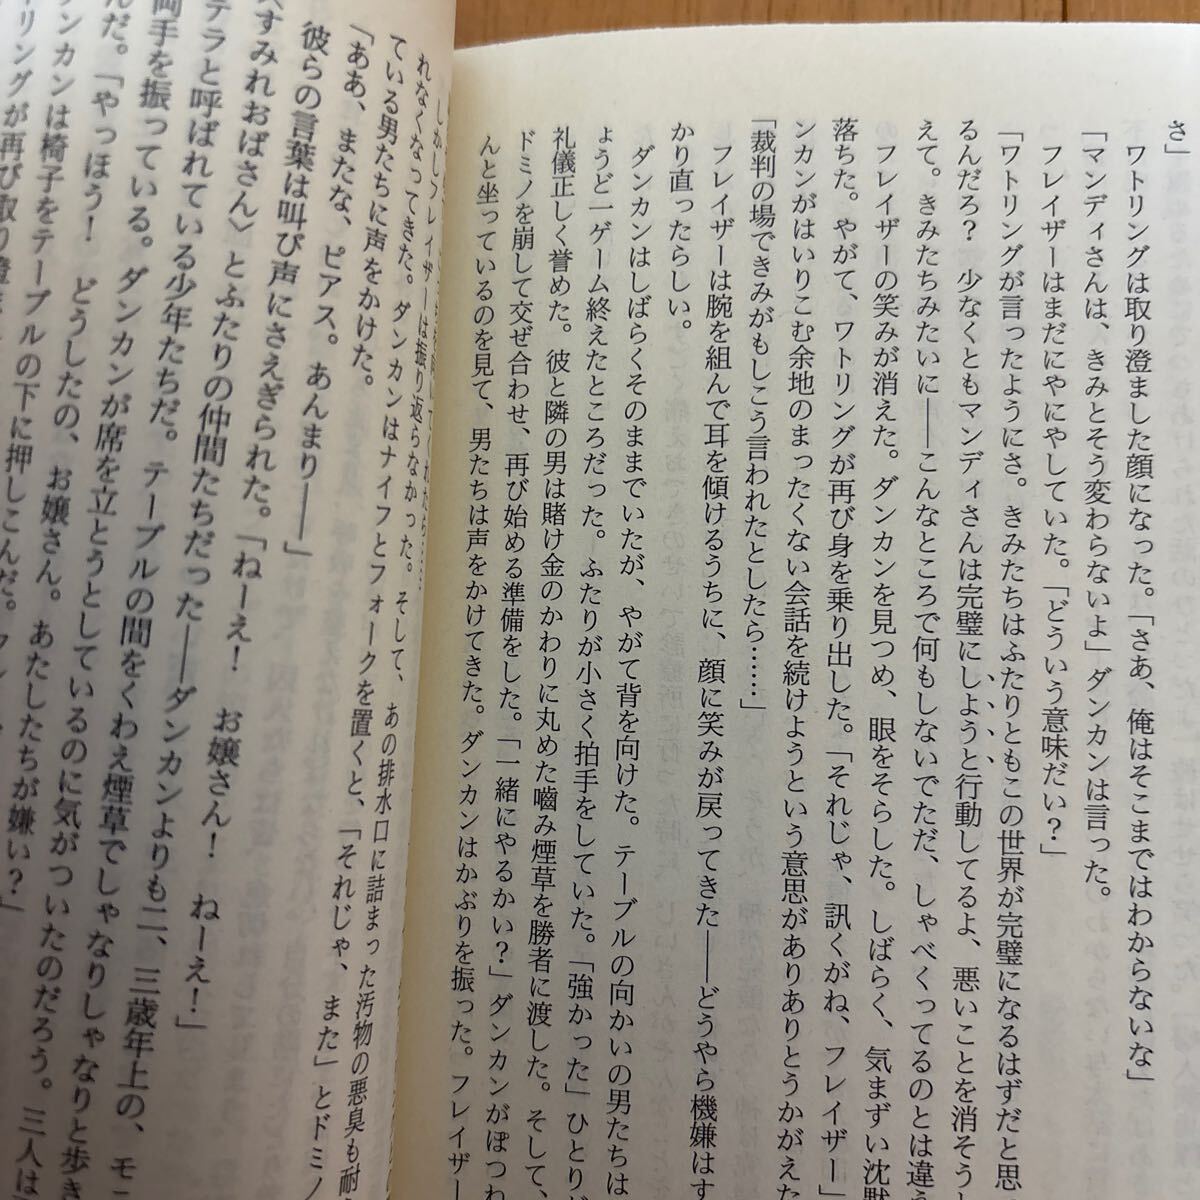 さ」
ワトリングは取り澄ました顔になった。「さあ、俺はそこまではわからないな」
「マンディさんは、きみとそう変わらないよ」ダンカンは言った。
フレイザーはまだにやにやしていた。「どういう意味だい？」
「ワトリングが言ったようにさ。きみたちはふたりともこの世界が完璧になるはずだと思
るんだろ？　少なくともマンディさんは完璧にしようと行動してるよ、悪いことを消そうし
えて。きみたちみたいに――こんなところで何もしないでただ、しゃべくってるのとは違う
フレイザーの笑みが消えた。ダンカンを見つめ、眼をそらした。しばらく、気まずい沈黙
落ちた。やがて、ワトリングが再び身を乗り出した。「それじゃ、訊くがね、フレイザー」
ンカンがはいりこむ余地のまったくない会話を続けようという意思がありありとうかがえた
「裁判の場できみがもしこう言われたとしたら……」
フレイザーは腕を組んで耳を傾けるうちに、顔に笑みが戻ってきた――どうやら機嫌はす
かり直ったらしい。
ダンカンはしばらくそのままでいたが、やがて背を向けた。テーブルの向かいの男たちは
ょうど一ゲーム終えたところだった。ふたりが小さく拍手をしていた。「強かった」ひとりど
礼儀正しく誉めた。彼と隣の男は賭け金のかわりに丸めた嚙み煙草を勝者に渡した。そして、
ドミノを崩して交ぜ合わせ、再び始める準備をした。「一緒にやるかい？」ダンカンがぽつね
んと坐っているのを見て、男たちは声をかけてきた。ダンカンはかぶりを振った。フレイザー
しかしフレイザーは振り返らなかった。そして、あの排水口に詰まった汚物の悪臭も耐
れなくなってきた。ダンカンはナイフとフォークを置くと、「それじゃ、また」とドミノ
ている男たちに声をかけた。
「ああ、またな、ピアス。あんまり――」
彼らの言葉は叫び声にさえぎられた。「ねーえ！　お嬢さん！　ねーえ！」
すみれおばさん〉とふたりの仲間たちだった――ダンカンよりも二、三歳年上の、モニ
テラと呼ばれている少年たちだ。テーブルの間をくわえ煙草でしゃなりしゃなりと歩き
両手を振っている。ダンカンが席を立とうとしているのに気がついたのだろう。三人は
んだ。「やっほう！　どうしたの、お嬢さん。あたしたちが嫌い？」
ンカンは椅子をテーブルの下に押しこんだ。
リングが再び取り澄